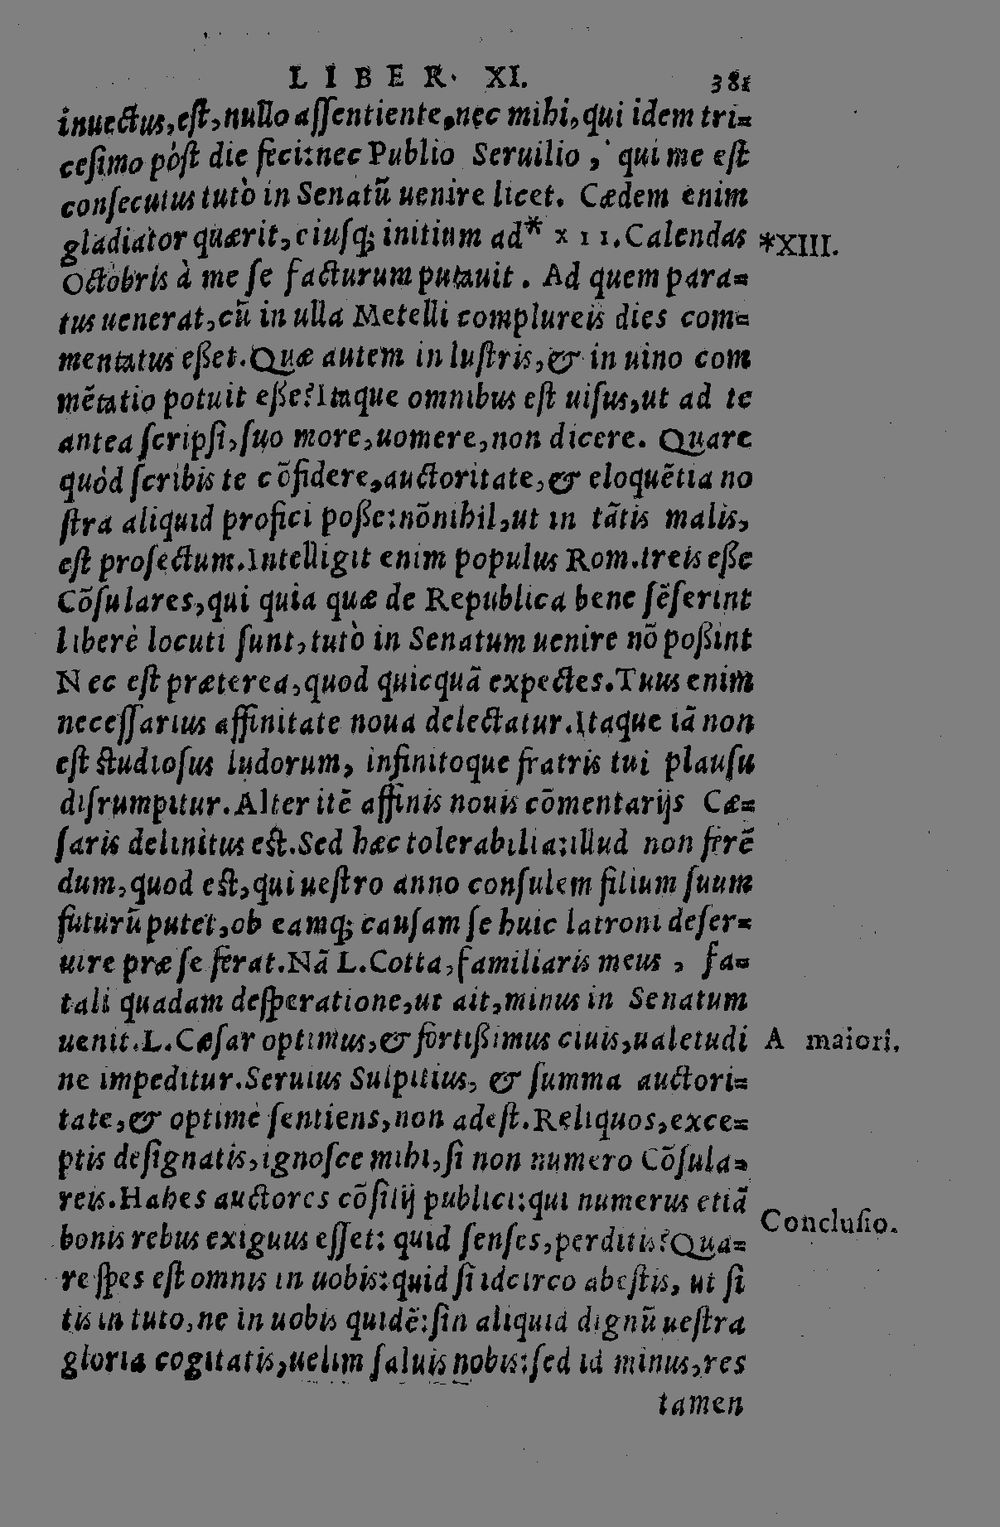 LIBER. XI. 381
inuectus, est, nullo assentiente, nec mihi, qui idem tri=
cesimo pòst die feci: nec Publio Seruilio, qui me est
consecutus tutò in Senatũ uenire licet. Cædem enim
gladiator quærit, eiusq; initium ad* XII. Calendas
*XIII.
Octobris à me se facturum putauit. Ad quem para=
tus uenerat, cũ in ulla Metelli complureis dies com=
mentatus eßet. Quæ autem in lustris, & in uino com
mẽtatio potuit eße? Itaque omnibus est uisus, ut ad te
antea scripsi, suo more, uomere, non dicere. Quare
quòd scribis te cõfidere, auctoritate, & eloquẽtia no
stra aliquid profici poße: nõnihil, ut in tãtis malis,
est profectum. Intelligit enim populus Rom. treis eße
Cõsulares, qui quia quæ de Republica bene sẽserint
liberè locuti sunt, tutò in Senatum uenire nõ poßint
Nec est præterea, quod quicquã expectes. Tuus enim
necessarius affinitate noua delectatur. Itaque iã non
est studiosus ludorum, infinitoque fratris tui plausu
disrumpitur. Alter itẽ affinis nouis cõmentarijs Cæ=
saris delinitus est. Sed hæc tolerabilia: illud non ferẽ
dum, quod est, qui uestro anno consulem filium suum
futurũ putet, ob eamq; causam se huic latroni deser=
uire præ se ferat. Nã L. Cotta, familiaris meus, fa=
tali quadam desperatione, ut ait, minus in Senatum
uenit. L. Cæsar optimus, & fortißimus ciuis, ualetudi
A maiori.
ne impeditur. Seruius Sulpitius, & summa auctori=
tate, & optimè sentiens, non adest. Reliquos, exce=
ptis designatis, ignosce mihi, si non numero Cõsula=
reis. Habes auctores cõsilij publici: qui numerus etiã
Conclusio.
bonis rebus exiguus esset: quid senses, perditis? Qua=
re spes est omnis in uobis: quid si idcirco abestis, ut si
tis in tuto, ne in uobis quidẽ: sin aliquid dignũ uestra
gloria cogitatis, uelim saluis nobis: sed id minus, res
tamen